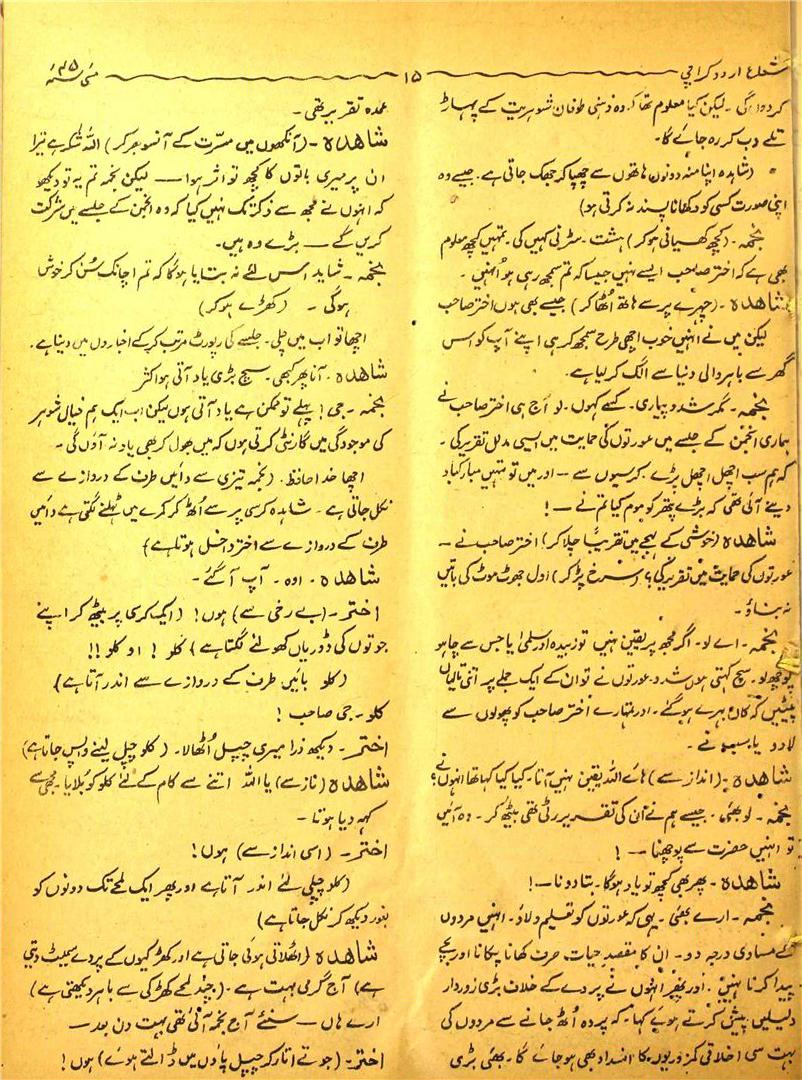 شعاع اردو کراچی ۱۵ مئی سنہ ۳۵
کر دوں گی۔ لیکن کیا معلوم تھا کہ وہ ذہنی طوفان شوہریت کے پہاڑ
تلے دب کر رہ جائے گا۔
(شاہدہ اپنا منہ دونوں ہاتھوں سے چھپا کر جھک جاتی ہے۔ جیسے وہ
اپنی صورت کسی کو دکھانا پسند نہ کرتی ہو)
نجمہ۔ (کچھ کھسیانی ہو کر) ہشت۔ سڑن کہیں کی۔ تمہیں کچھ معلوم
بھی ہے کہ اختر صاحب ایسے نہیں جیسا کہ تم سمجھ رہی ہو انہیں۔
شاھدہ۔ (چہرے پر سے ہاتھ اُٹھا کر) جیسے بھی ہوں اختر صاحب
لیکن میں نے انہیں خوب اچھی طرح سمجھ کر ہی اپنے آپ کو اس
گھر سے باہر والی دنیا سے الگ کر لیا ہے۔
نجمہ۔ مگر شدو پیاری۔ کسے کہوں۔ لو آج ہی اختر صاحب نے
ہماری انجمن کے جلسے میں عورتوں کی حمایت میں ایسی مدلل تقریر کی۔
کہ ہم سب اچھل اچھل پڑے کرسیوں سے —اور میں تو تمہیں مبارکباد
دینے آئی تھی کہ بڑے پتھر کو موم کیا تم نے —!
شاھدہ (خوشی کے لہجے میں تقریباً چلا کر) اختر صاحب نے —
عورتوں کی حمایت میں تقریر کی؟ (سرخ پڑ کر) اول جھوٹ موٹ کی باتیں
نہ بناؤ۔
نجمہ۔ اے لو۔ اگر مجھ پر یقین نہیں تو زبیدہ اور سلمیٰ یا جس سے چاہو
پوچھ لو۔ سچ کہتی ہوں شدو۔ عورتوں نے تو ان کے ایک جملے پر اتنی تالیاں
پیٹیں کہ کان بہرے ہو گئے۔ اور تمہارے اختر صاحب کو پھولوں سے
لاد دیا سبھوں نے۔
شاھدہ۔ (انداز سے) ہائے اللہ یقین نہیں آتا۔ کیا کیا کہا تھا انہوں نے؟
نجمہ۔ لو بھئی۔ جیسے ہم نے ان کی تقریر رٹی تھی بیٹھ کر۔ وہ آئیں
تو انہیں حضرت سے پوچھنا —!
شاھدہ۔ پھر بھی کچھ تو یاد ہو گا۔ بتا دو نا —!
نجمہ۔ ارے بھئی۔ یہی کہ عورتوں کو تعلیم دلاؤ۔ انہیں مردوں
کے مساوی درجہ دو۔ ان کا مقصد حیات صرف کھانا پکانا اور بچے
پیدا کرنا نہیں۔ اور پھر انہوں نے پردے کے خلاف بڑی زوردار
دلیلیں پیش کرتے ہوئے کہا۔ کہ پردہ اُٹھ جانے سے مردوں کی
بہت سی اخلاقی کمزوریوں کا انسداد بھی ہو جائے گا۔ بھئی بڑی
عمدہ تقریر تھی۔
شاھدہ۔ (آنکھوں میں مسرت کے آنسو بھر کر) اللہ شکر ہے تیرا
ان پر میری باتوں کا کچھ تو اثر ہوا —لیکن نجمہ تم یہ تو دیکھو
کہ انہوں نے مجھ سے ذکر تک نہیں کیا کہ وہ انجمن کے جلسے میں شرکت
کریں گے —بڑے وہ ہیں۔
نجمہ۔ شاید اس لئے نہ بتایا ہو گا کہ تم اچانک سُن کر خوش
ہو گی۔ (کھڑے ہو کر)
اچھا تو اب میں چلی۔ جلسے کی رپورٹ مرتب کر کے اخباروں میں دینا ہے۔
شاھدہ۔ آنا پھر کبھی۔ سچ بڑی یاد آتی ہو اکثر
نجمہ۔ جی! پہلے تو ممکن ہے یاد آتی ہوں لیکن اب ایک ہم خیال شوہر
کی موجودگی میں گارنٹی کرتی ہوں کہ میں بھول کر بھی یاد نہ آؤں گی۔
اچھا خدا حافظ۔ (نجمہ تیزی سے دائیں طرف کے دروازے سے
نکل جاتی ہے۔ شاہدہ کرسی پر سے اُٹھ کر کمرے میں ٹہلنے لگتی ہے دائیں
طرف کے دروازے سے اختر داخل ہوتا ہے)
شاھدہ۔ اوہ۔ آپ آ گئے۔
اختر۔ (بے رخی سے) ہوں! (ایک کرسی پر بیٹھ کر اپنے
جوتوں کی ڈوریاں کھولنے لگتا ہے) کلو! او کلو!!
(کلو بائیں طرف کے دروازے سے اندر آتا ہے)
کلو۔ جی صاحب!
اختر۔ دیکھ ذرا میری چپل اُٹھا لا۔ (کلو چپل لینے واپس جاتا ہے)
شاھدہ (ناز سے) یا اللہ اتنے سے کام کے لئے کلو کو بلایا۔ مجھی سے
کہہ دیا ہوتا۔
اختر۔ (اسی انداز سے) ہوں!
(کلو چپلی لئے اندر آتا ہے اور پھر ایک لمحے تک دونوں کو
بغور دیکھ کر نکل جاتا ہے)
شاھدہ (اٹھلاتی ہوئی جاتی ہے اور کھڑکیوں کے پردے سمیٹ دیتی
ہے) آج گرمی بہت ہے۔ (چند لمحے کھڑکی سے باہر دیکھتی ہے)
ارے ہاں —سنئے آج نجمہ آئی تھی بہت دن بعد —
اختر۔ (جوتے اتار کر چپل پاؤں میں ڈالتے ہوئے) ہوں!